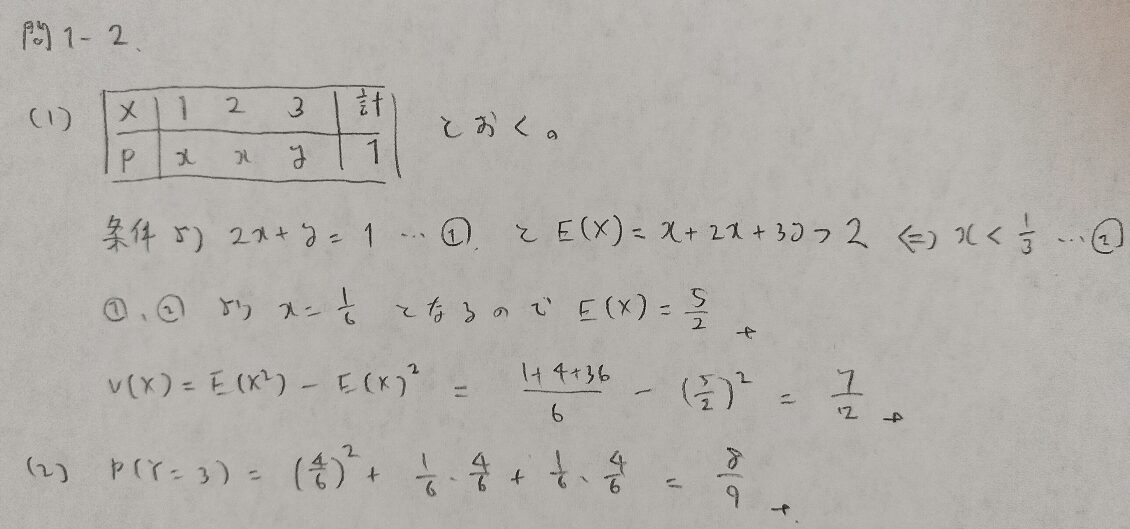 問1-2.
(1) X 1 2 3 計 とおく。
P x x y 1
条件より 2x+y=1 … ①. と E(X)=x+2x+3y>2 ⇔ x<1/3 …②
①、② より x=1/6 となるので E(X)=5/2
V(X)=E(X²)-E(X)² = (1+4+36)/6 - (5/2)² = 7/12
(2) P(Y=3)=(4/6)²+1/6・4/6+1/6・4/6=8/9